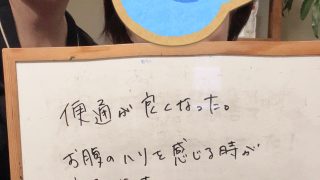 便通が良くなった。
お腹のハリを感じる時が